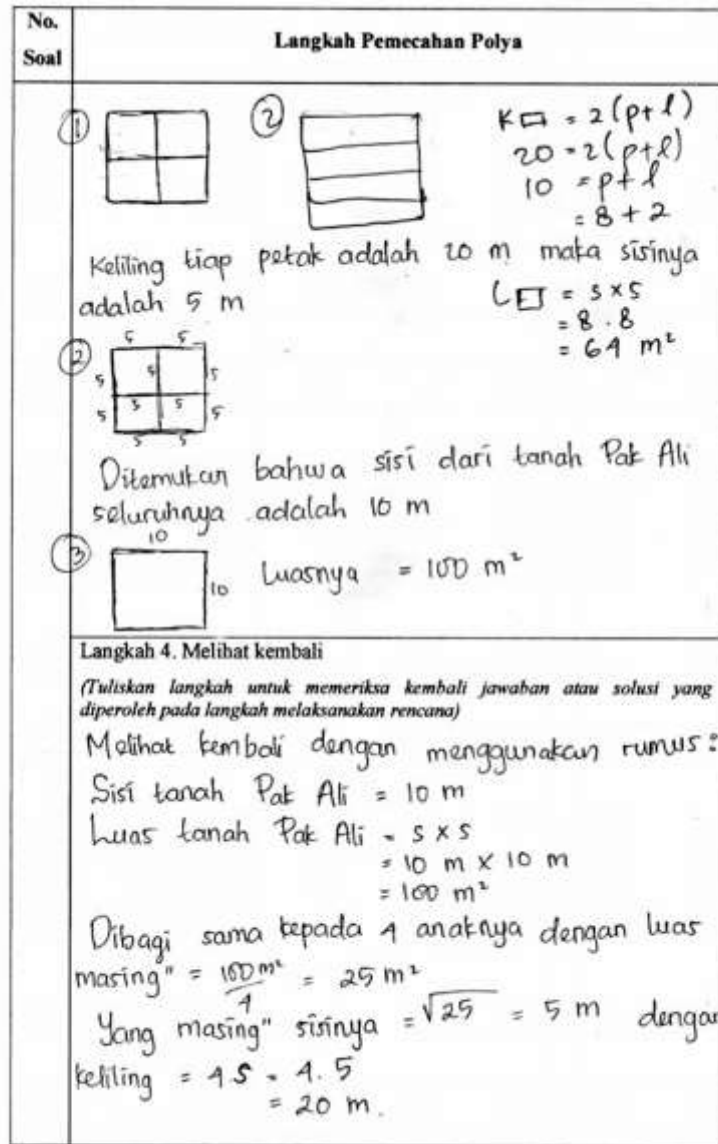 No.
Soal
Langkah Pemecahan Polya
① ②
K▭ = 2(p+l)
20 = 2(p+l)
10 = p+l
= 8+2
Keliling tiap petak adalah 20 m maka sisinya
adalah 5 m
L□ = s×s
= 8.8
= 64 m²
②
5 5
5 5 5
5 5 5 5
5 5
Ditemukan bahwa sisi dari tanah Pak Ali
seluruhnya adalah 10 m
③
10
10
Luasnya = 100 m²
Langkah 4. Melihat kembali
(Tuliskan langkah untuk memeriksa kembali jawaban atau solusi yang
diperoleh pada langkah melaksanakan rencana)
Melihat kembali dengan menggunakan rumus:
Sisi tanah Pak Ali = 10 m
Luas tanah Pak Ali = s × s
= 10 m × 10 m
= 100 m²
Dibagi sama kepada 4 anaknya dengan luas
masing" = 100 m²/4 = 25 m²
Yang masing" sisinya = √25 = 5 m dengan
keliling = 4s = 4.5
= 20 m.